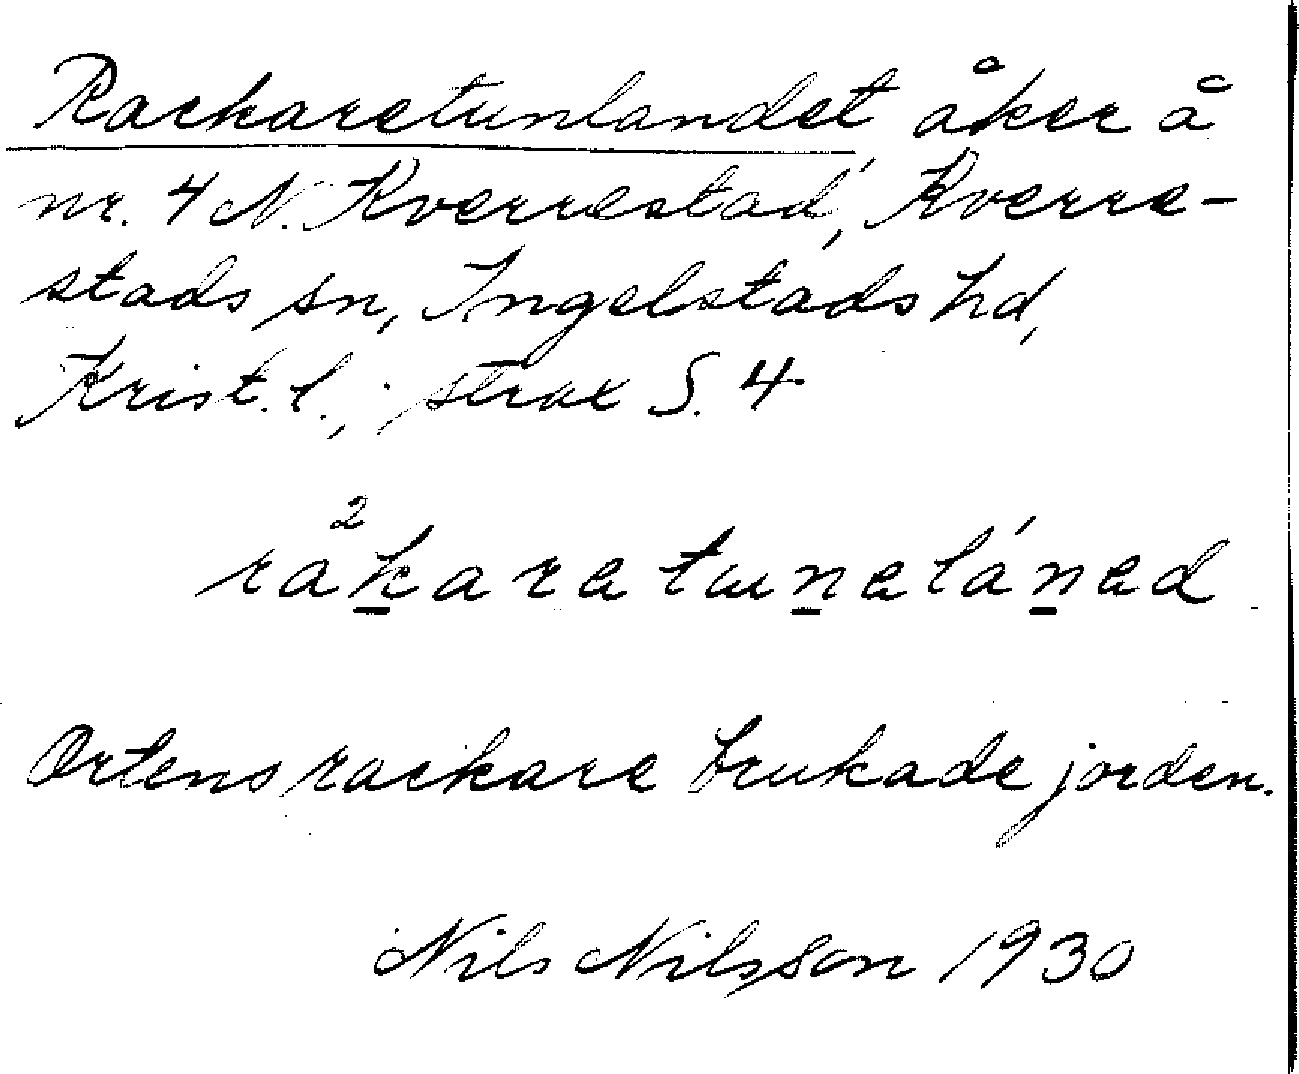 Rackaretunlandet, åker å
nr. 4 N. Kverrestad, Kverre-
stads sn, Ingelstads hd,
Krist. l.; strax S. 4
2
rakaretuneláned
Ortens rackare brukade jorden.
Nils Nilsson 1930